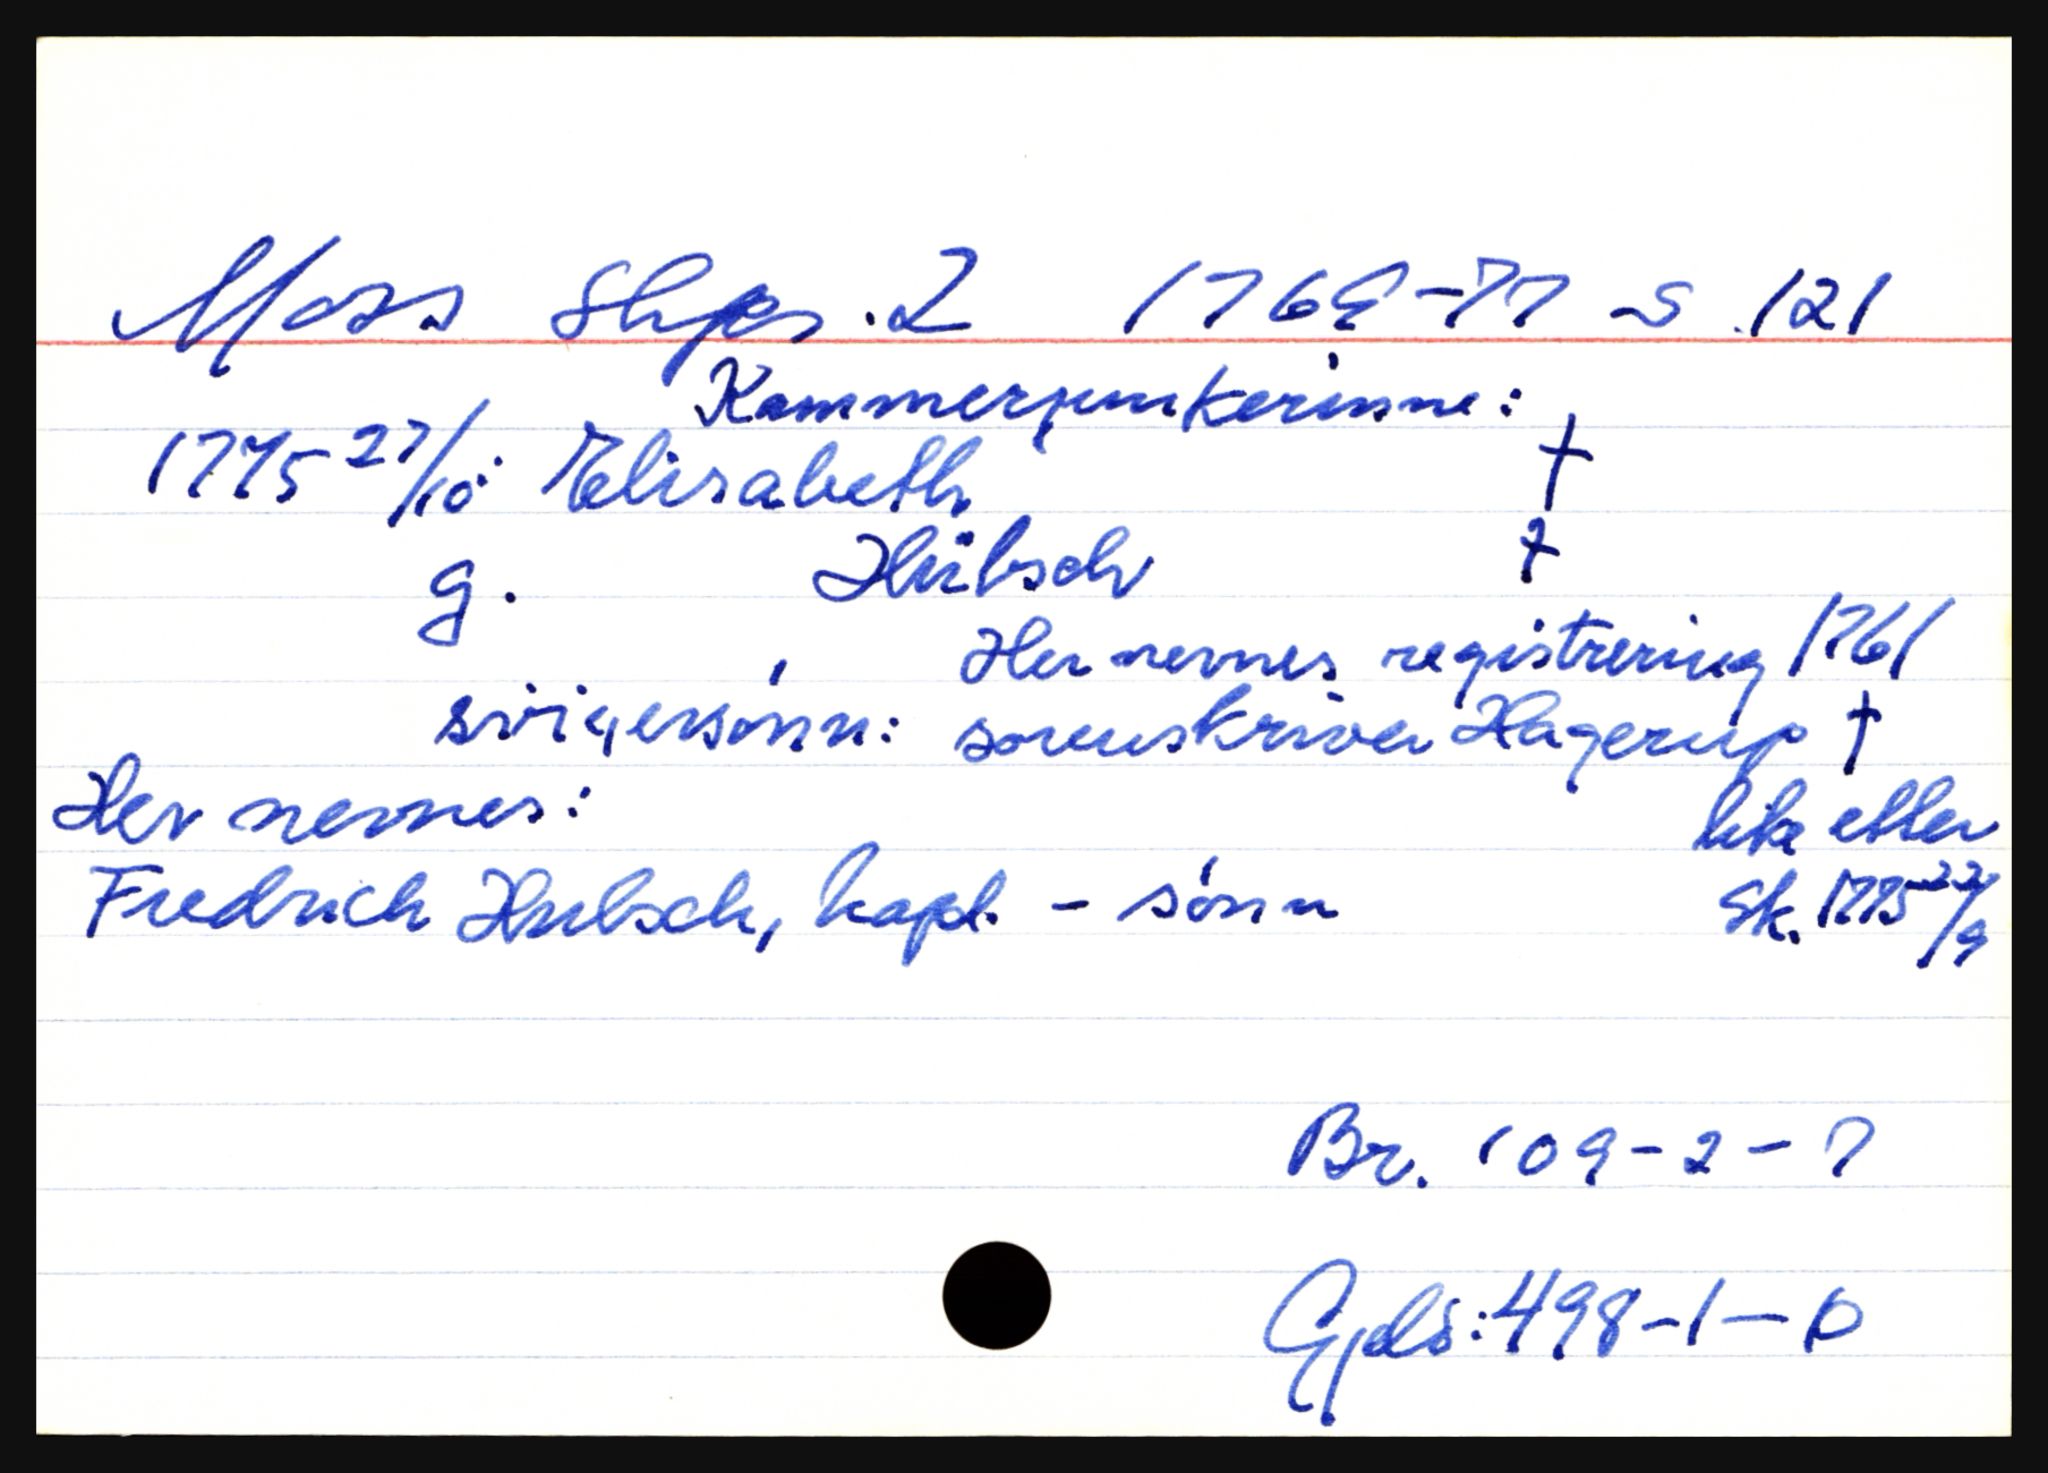 Moss Skpr. 2 1769-77 s 121
Kammerjunkerinne:
1775 27/10: Elisabeth †
g. Hübsch †
Her nevnes registrering 1761
svigersønn: sorenskriver Hagerup †
Her nevnes: lik etter
Fredrich Hubsch, kapt. - sønn Sk. 1775 22/9
Br. 109-2-7
Gjeld: 498-1-0